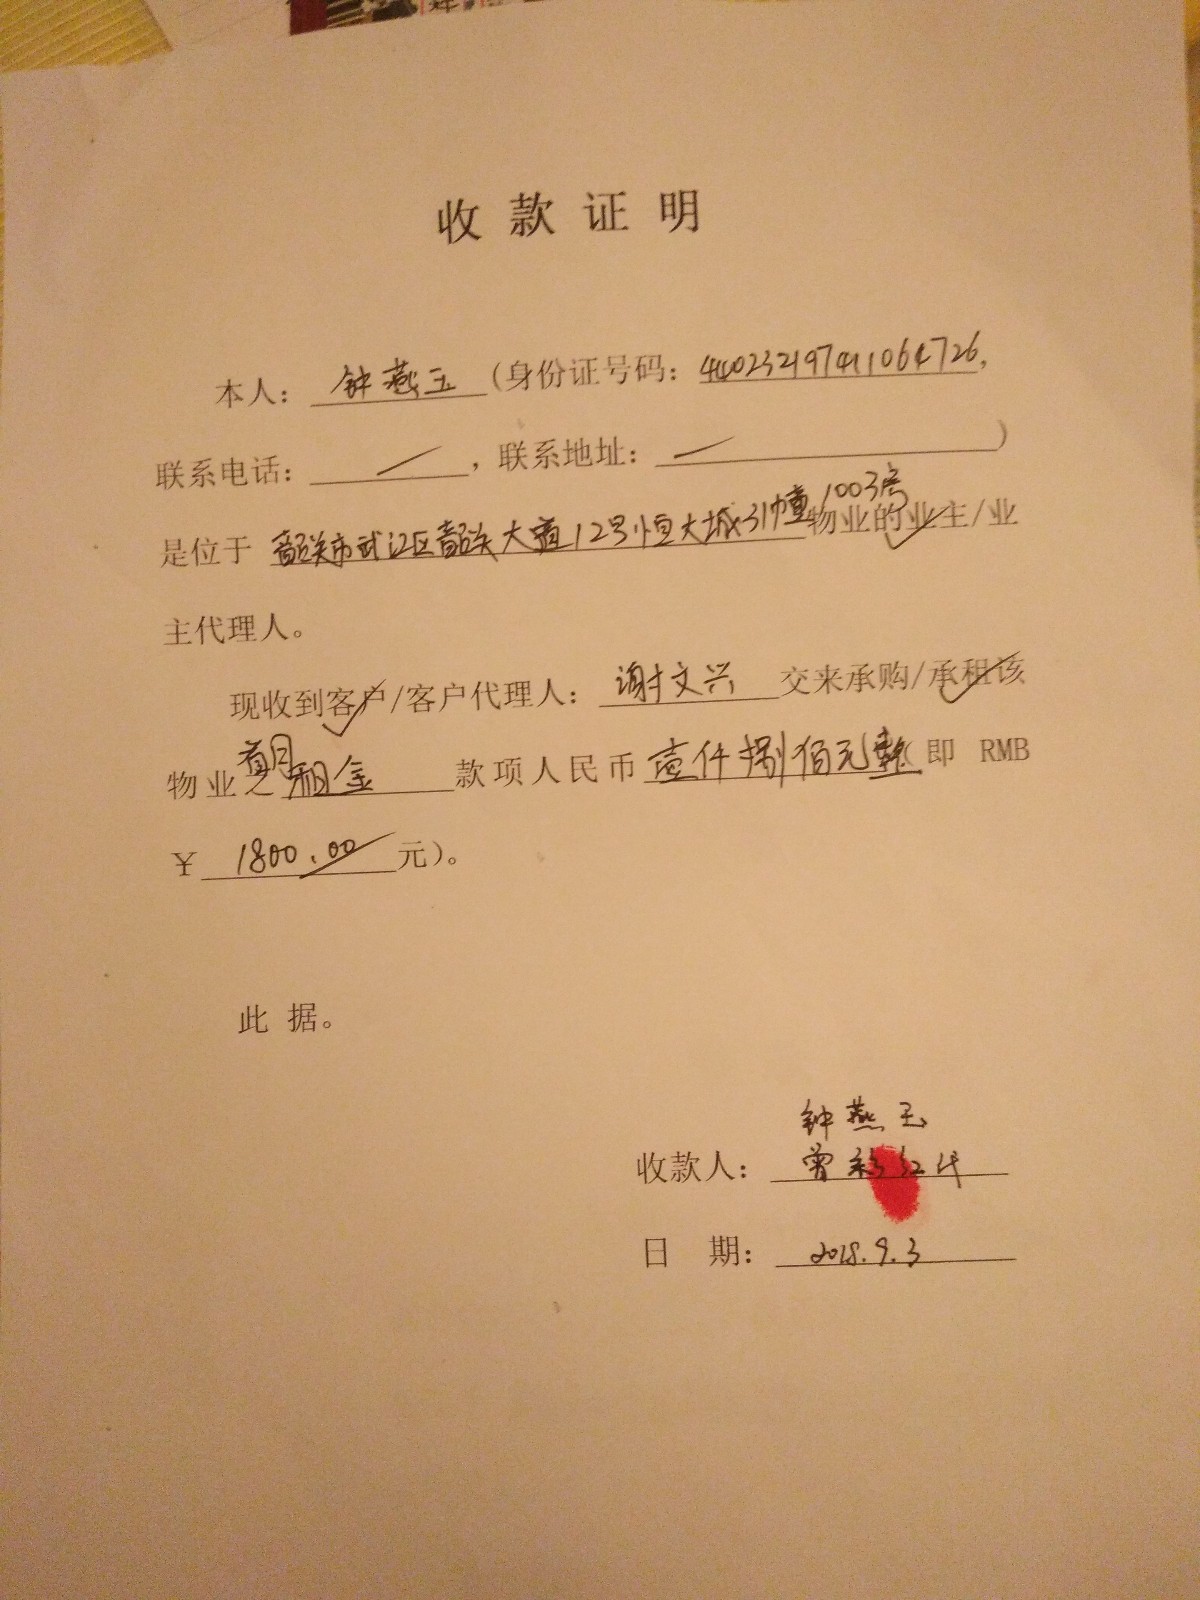 收款证明
本人：钟燕玉（身份证号码：440232197411064726，
联系电话：／，联系地址：／）
是位于韶关市武江区韶关大道12号恒大城31幢1003房物业的业主/业
主代理人。
现收到客户/客户代理人：谢文兴交来承购/承租该
物业之首月租金款项人民币壹仟捌佰元整（即 RMB
￥1800.00元）。
此 据。
钟燕玉
收款人：曾彩红代
日 期：2018.9.3